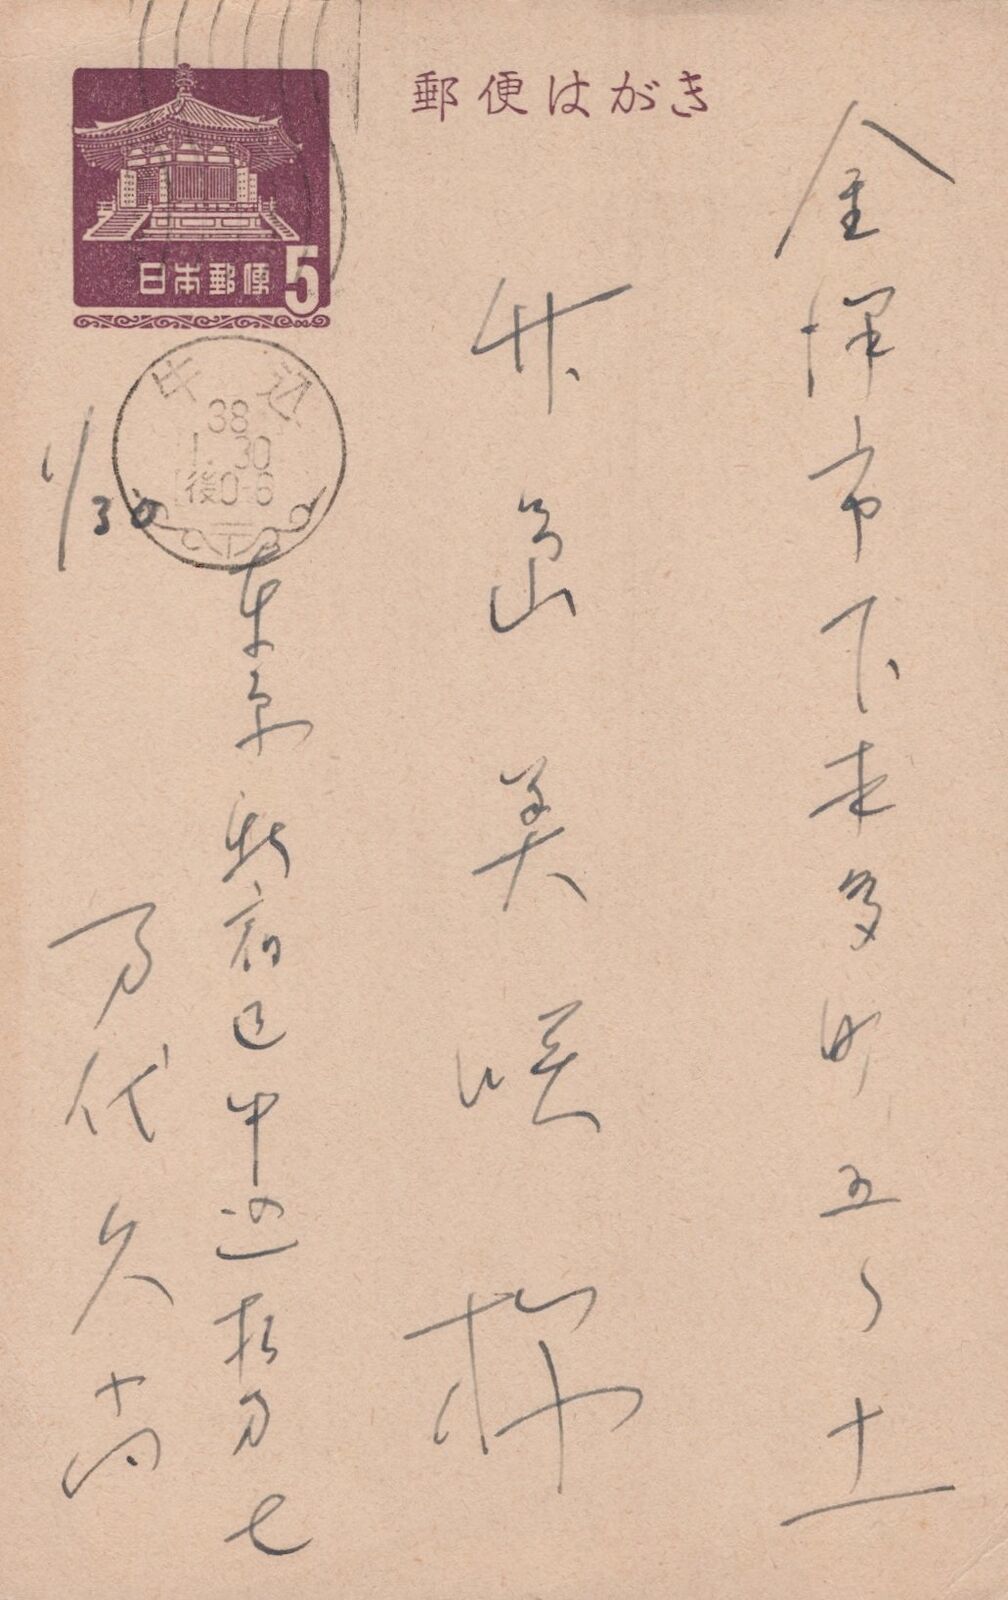 郵便はがき
日本郵便
5
牛込
38
1.30
後0-6
金沢市下本多町五ノ十一
竹島美咲様
1/30
東京新宿区牛込
七
万代久尚